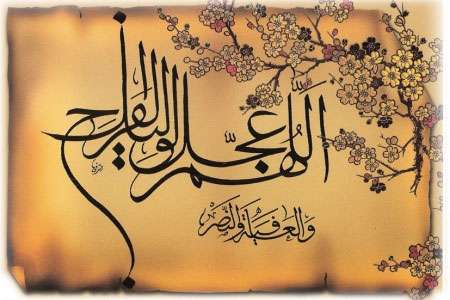 اَللّٰهُمَّ عَجِّل لوليك الفرج
وَالعافية والنصر